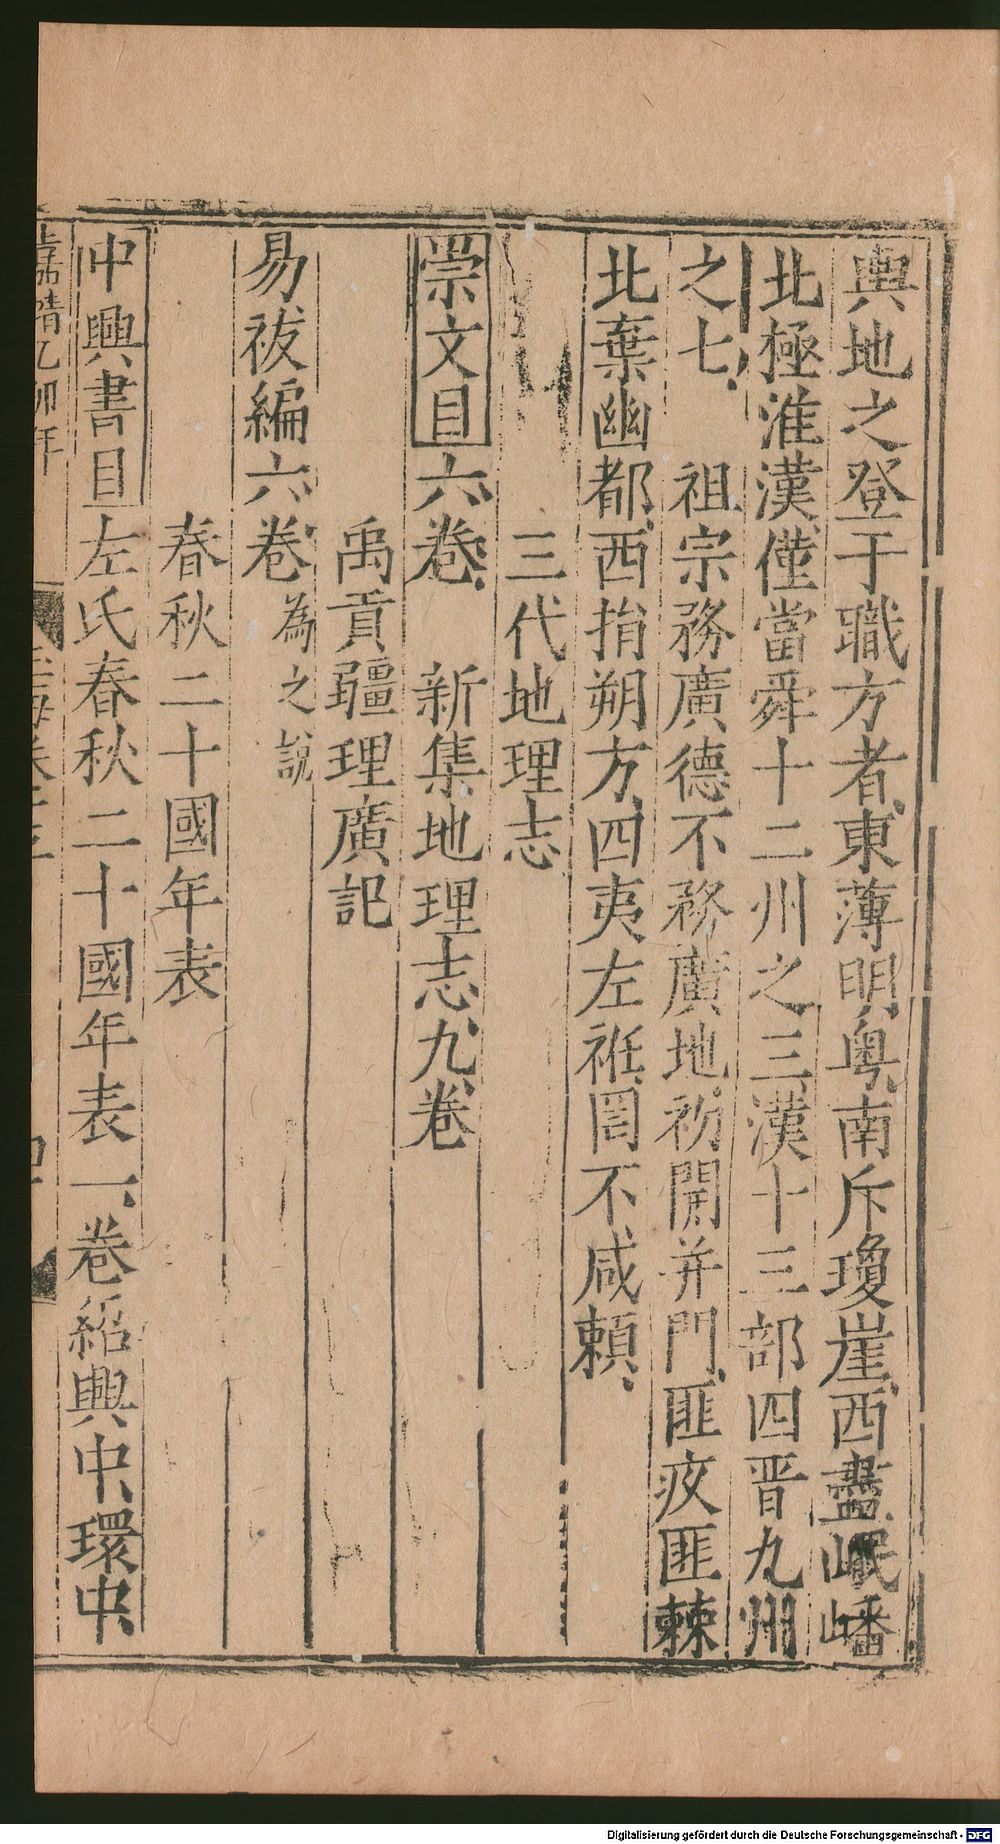 輿地之登于職方者東薄明粤南斥瓊崖西盡岷嶓
北極淮漢僅當舜十二州之三漢十三部四晋九州
之七　祖宗務廣德不務廣地初開并門匪疚匪棘
北棄幽都西捐朔方四夷左衽罔不咸賴
三代地理志
崇文目六卷　新集地理志九卷
禹貢疆理廣記
易祓編六卷為之說
春秋二十國年表
中興書目左氏春秋二十國年表一卷紹興中環中
嘉靖乙卯年
Digitalisierung gefördert durch die Deutsche Forschungsgemeinschaft - DFG